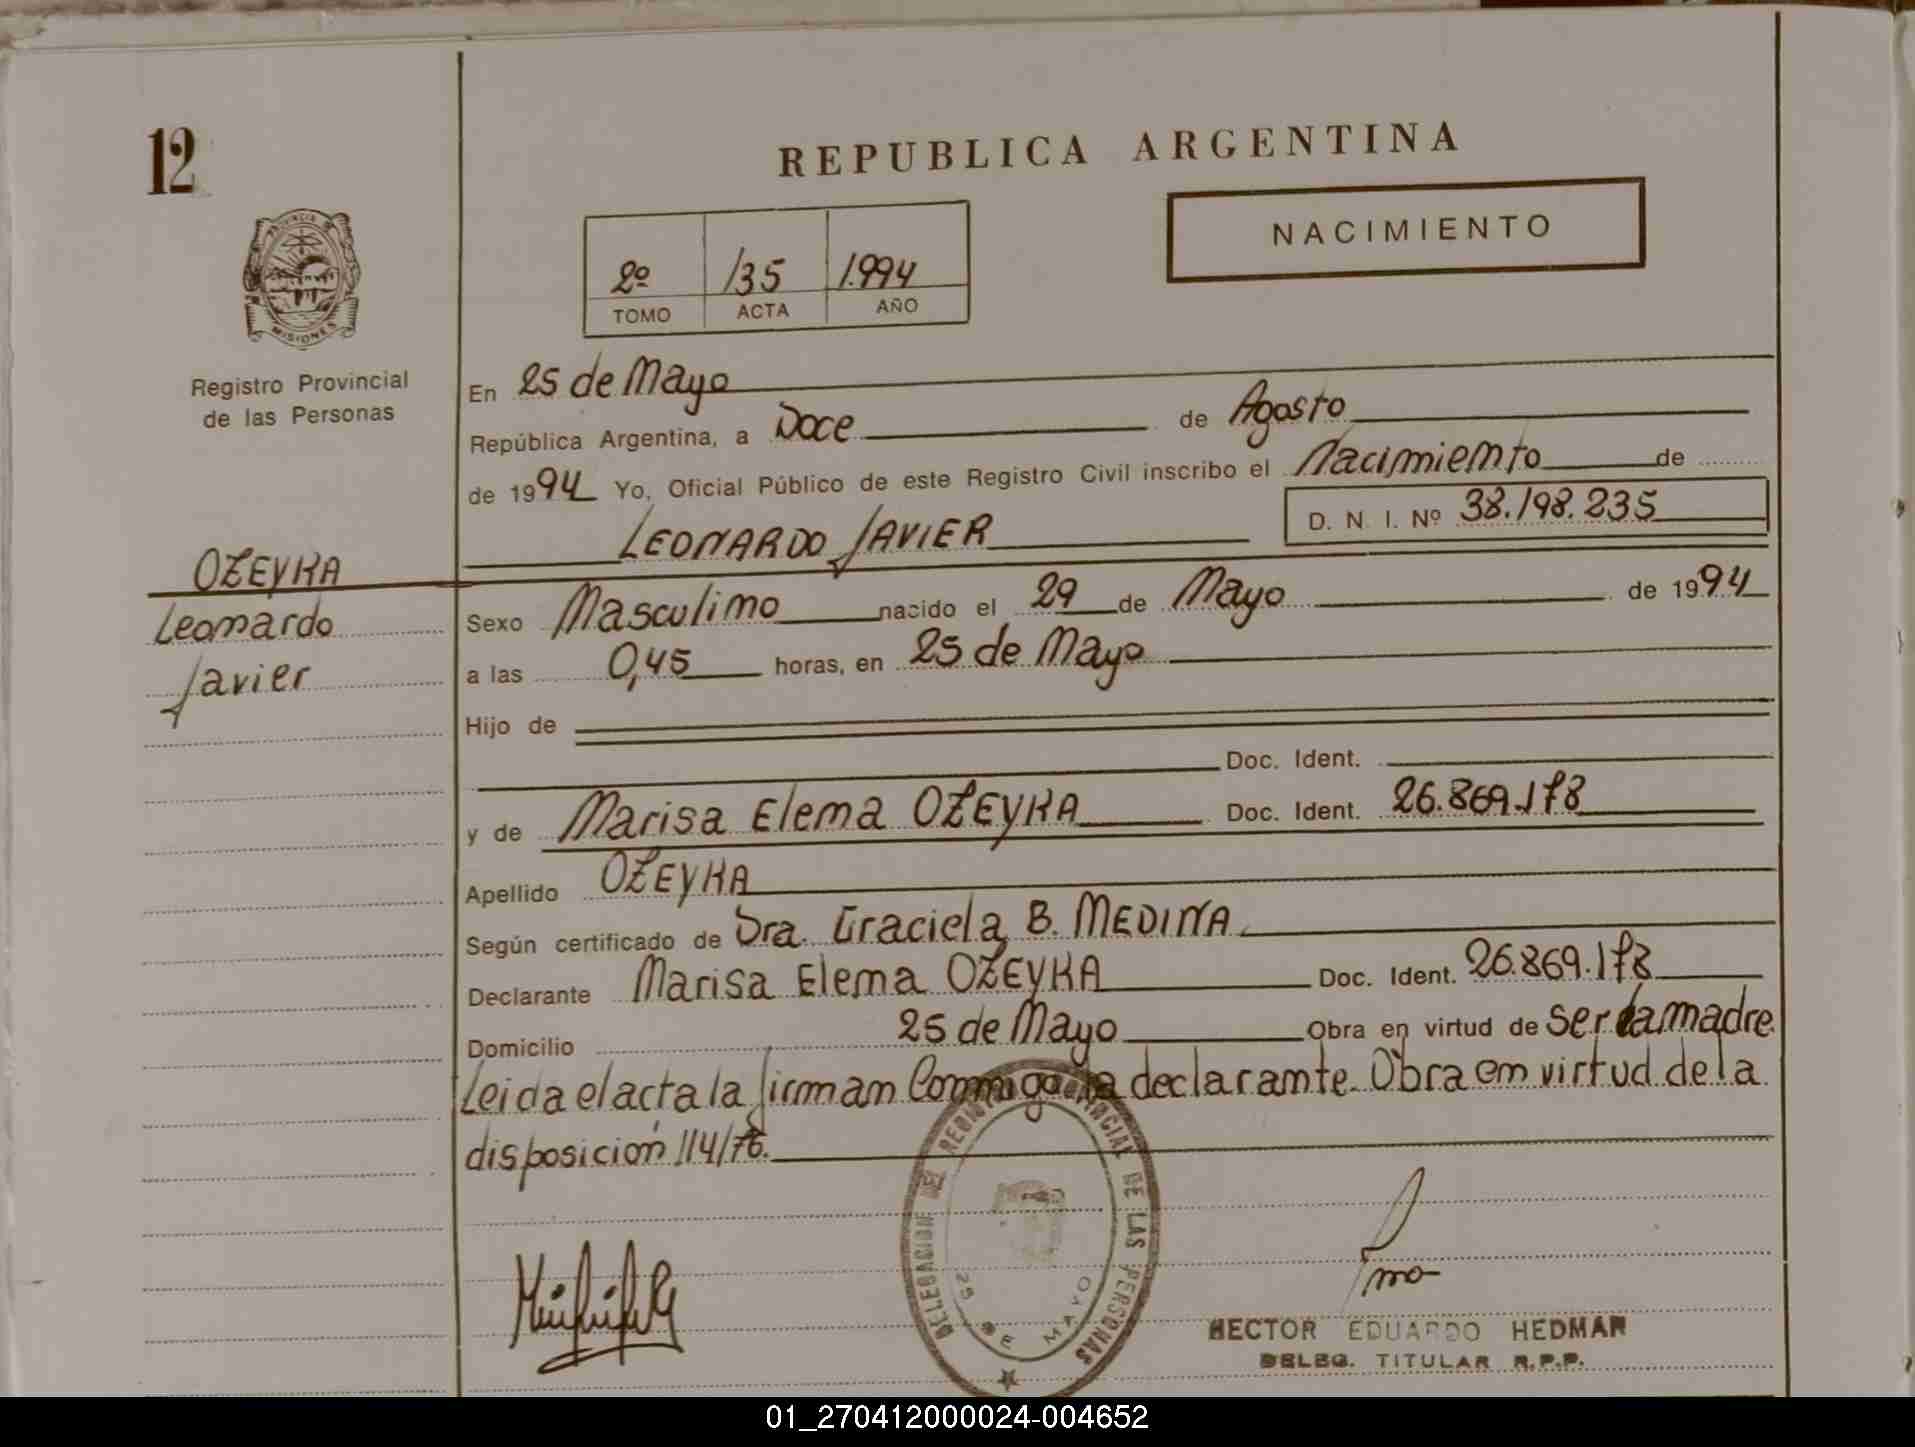 12
REPUBLICA ARGENTINA
NACIMIENTO
PROVINCIA DE
MISIONES
2º /35 1.994
TOMO ACTA AÑO
Registro Provincial
de las Personas
En 25 de Mayo
República Argentina, a Doce de Agosto
de 1994 Yo, Oficial Público de este Registro Civil inscribo el Nacimiento de
D. N. I. Nº 38.198.235
LEONARDO JAVIER
OZEYKA
Leonardo
Javier
Sexo Masculino nacido el 29 de Mayo de 1994
a las 0,45 horas, en 25 de Mayo
Hijo de
Doc. Ident.
y de Marisa Elena OZEYKA Doc. Ident. 26.869.178
Apellido OZEYKA
Según certificado de Dra. Graciela B. MEDINA
Declarante Marisa Elena OZEYKA Doc. Ident. 26.869.178
Domicilio 25 de Mayo Obra en virtud de ser la madre
Leida el acta la firman Conmigo la declarante. Obra en virtud de la
disposición 114/76.
DELEGACION DEL REGISTRO PROVINCIAL DE LAS PERSONAS
25 DE MAYO
HECTOR EDUARDO HEDMAN
DELEG. TITULAR R.P.P.
01_270412000024-004652